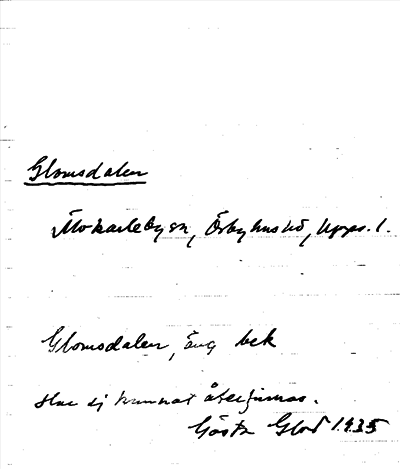 Glomsdalen
Älvkarleby sn, Örbyhus hd, Upps. l.
Glomsdalen, äng bek
Har ej kunnat återfinnas.
Gösta Glad 1935